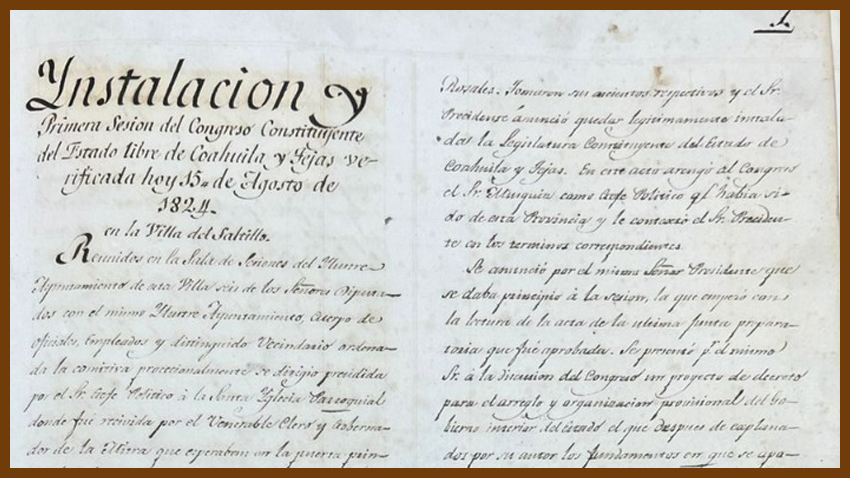 1.
Ynstalacion y
Primera Sesion del Congreso Constituyente
del Estado libre de Coahuila y Tejas ve-
rificada hoy 15,, de Agosto de
1824.
en la Villa del Saltillo.
Reunidos en la Sala de Seciones del Yllustre
Ayuntamiento de esta Villa seis de los Señores Diputa-
dos con el mismo Yllustre Ayuntamiento, cuerpo de
oficiales, empleados y distinguido Vecindario ordena-
da la comitiva procecionalmente se dirigio precidida
por el Sr. Gefe Politico à la Santa Yglecia Parroquial
donde fué recivida por el Venerable Clero y Goberna-
dor de la Mitra que esperaban en la puerta prin-
Rosales. Tomaron sus acientos respectivos y el Sr.
Precidente anunció quedar legitimamente instala-
da la Legislatura Constituyente del Estado de
Coahuila y Tejas. En este acto arengó al Congreso
el Sr. como Gefe Politico qe. habia si-
do de esta Provincia y le contextó el Sr. Preciden-
te en los terminos correspondientes.
Se anunció por el mismo Señor Precidente que
se daba principio à la sesion, la que empezó con
la lectura de la acta de la ultima junta prepara-
toria que fué aprobada. Se presentó pr. el mismo
Sr. à la discucion del Congreso un proyecto de decreto
para el arreglo y organizacion provicional del Go-
bierno interior del estado el que despues de esplana-
dos por su autor los fundamentos en que se apo-